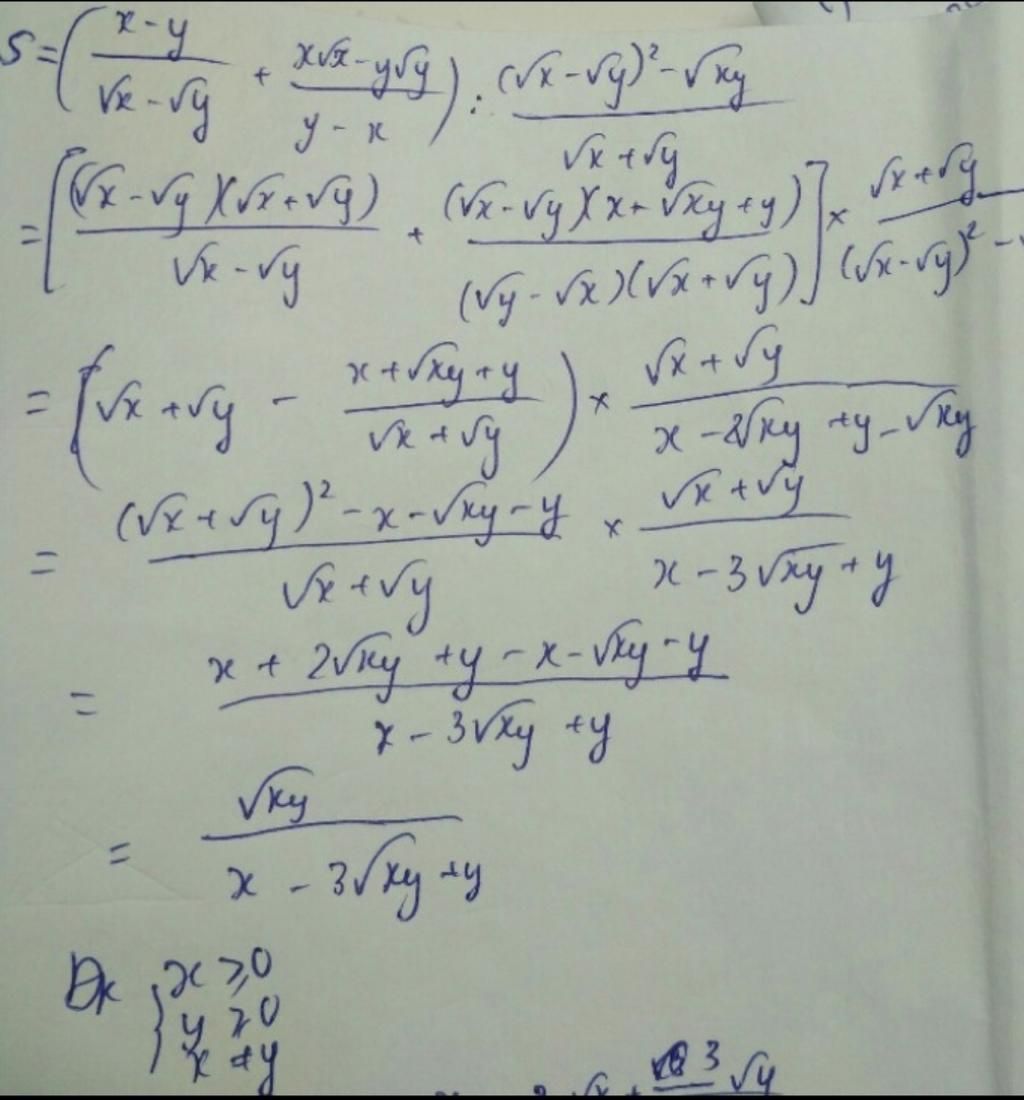 S = ( (x - y)/(√x - √y) + (x√x - y√y)/(y - x) ) : ((√x - √y)² - √xy)/(√x + √y)
= [ ((√x - √y)(√x + √y))/(√x - √y) + ((√x - √y)(x + √xy + y))/((√y - √x)(√x + √y)) ] × (√x + √y)/((√x - √y)² -
= ( √x + √y - (x + √xy + y)/(√x + √y) ) × (√x + √y)/(x - 2√xy + y - √xy)
= ((√x + √y)² - x - √xy - y)/(√x + √y) × (√x + √y)/(x - 3√xy + y)
= (x + 2√xy + y - x - √xy - y)/(x - 3√xy + y)
= √xy/(x - 3√xy + y)
Đk { x ≥ 0
y ≥ 0
x ≠ y
3 √y